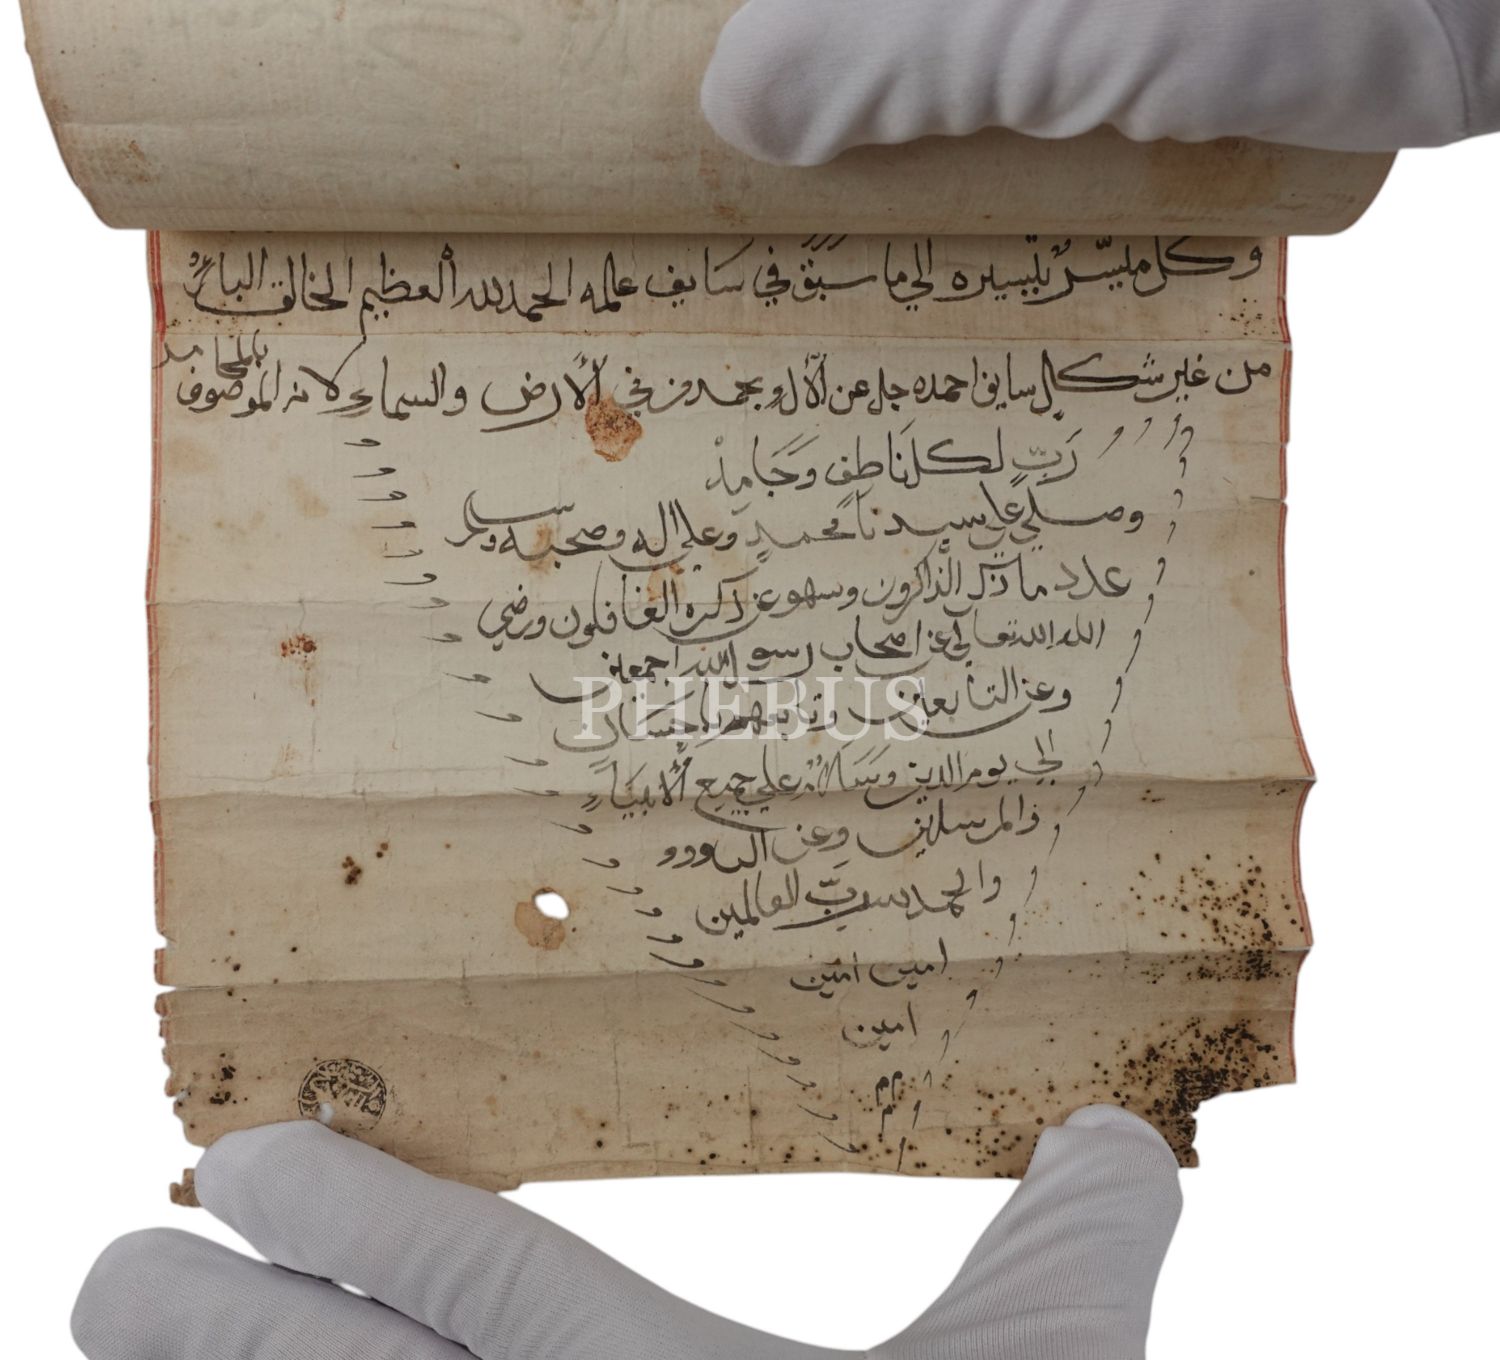 وكل ميسّر بتيسيره الي ما سبق في سايف علمه الحمد لله العظيم الخالق الباري
من غير شكل سايف احمده جل عن الأول وبحمد من في الأرض والسماء لانه الموصوف بالمحامد
رَبّ لكل نَاطق وَجَامِد
وصلي علي سيدنا محمد وعلي اله وصحبه وسلم
عدد ما ذكر الذاكرون وسهو عن ذكره الغافلون ورضي
الله تعالي عن اصحاب رسول الله اجمعين
وعن التابعين وتابعهم باحسان
الي يوم الدين وسلام علي جميع الأنبياء
والمرسلين وعن
والحمد لله ربّ العالمين
امين امين
امين
م م
م
PHEBUS